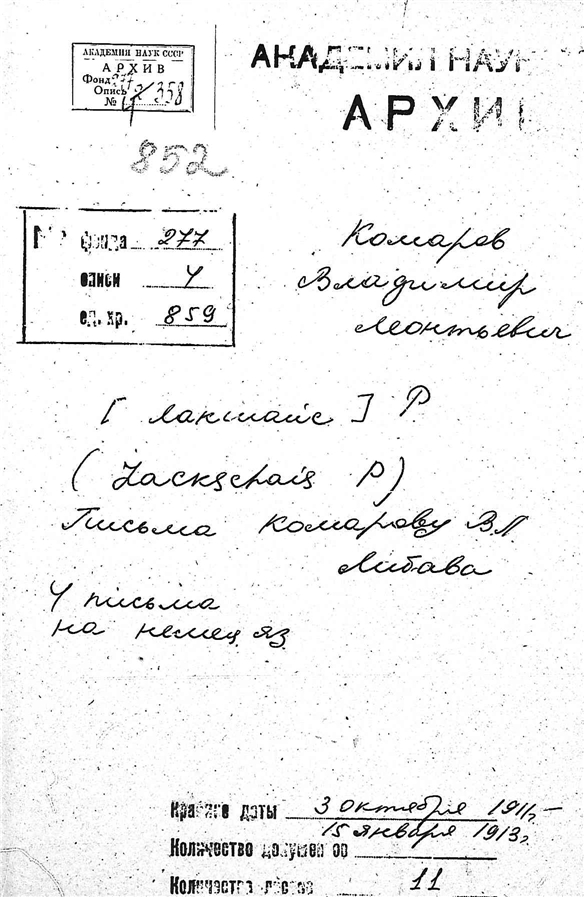 АКАДЕМИЯ НАУК СССР
АРХИВ
Фонд 277
Опись 4
№ 358
АКАДЕМИЯ НАУК
АРХИ
852
№ фонда 277
описи 4
ед. хр. 859
Комаров
Владимир
Леонтьевич
[Лакшайс] Р
(Lackschais P)
Письма Комарову В.Л
Либава
4 письма
на немец яз.
Крайние даты 3 октября 1911г –
15 января 1913г
Количество документов
Количество листов 11